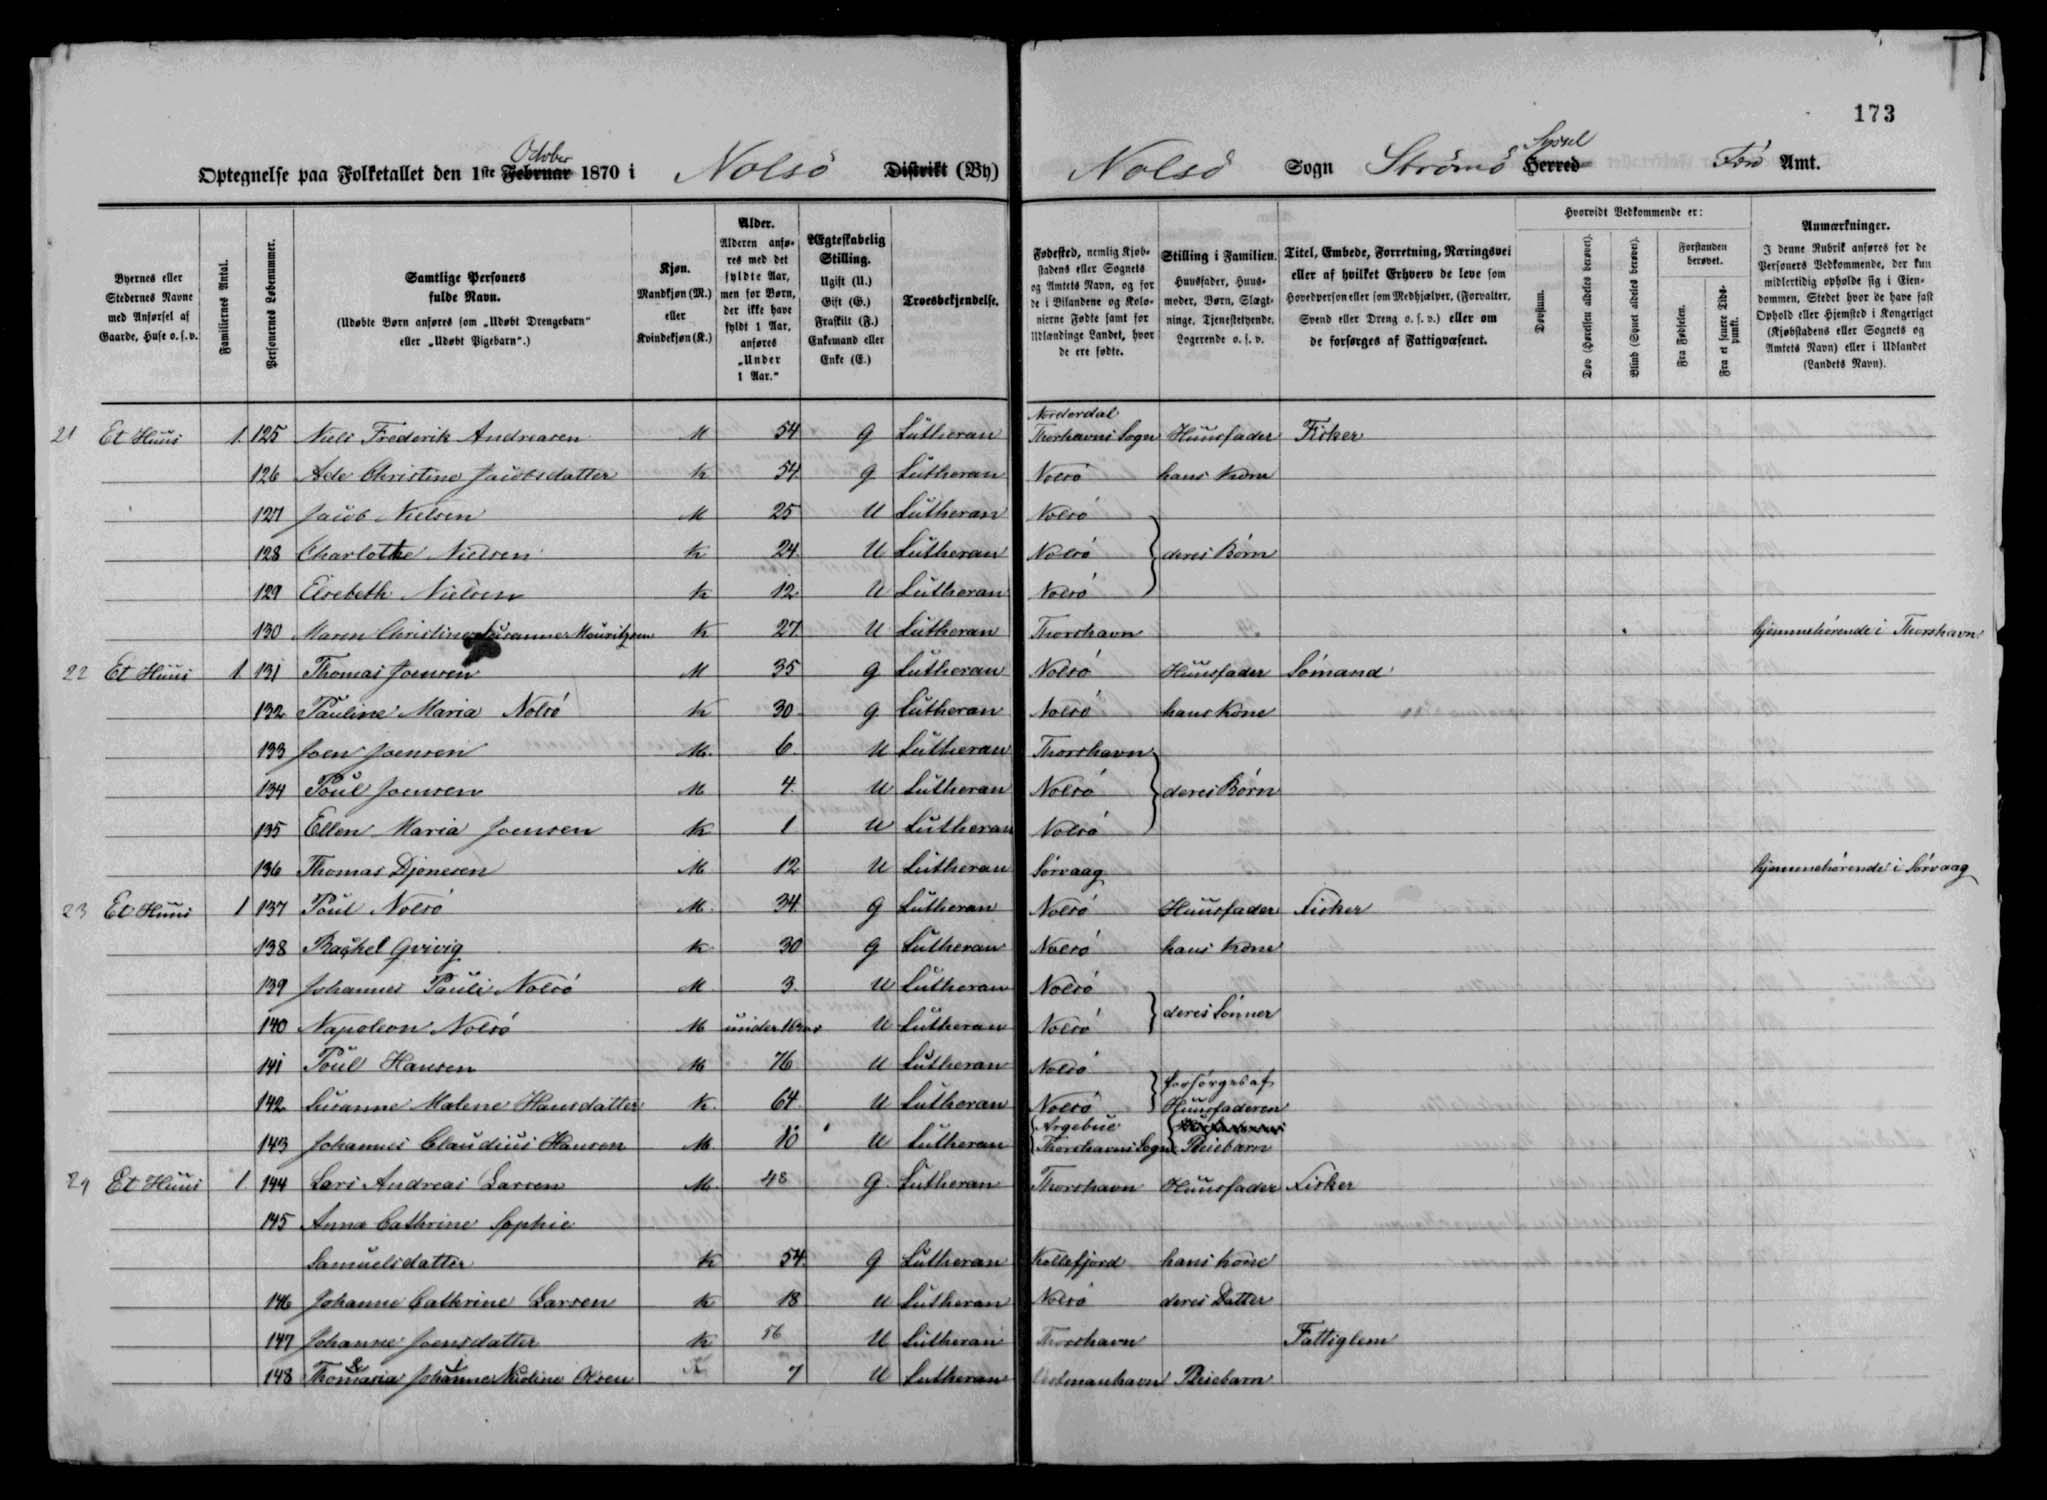 173
October
Syssel
Optegnelse paa Folketallet den 1ste Februar 1870 i Nolsö Distrikt (By) Nolsö Sogn Strömö Herred Færö Amt.
Byernes eller Stedernes Navne med Anførsel af Gaarde, Huse o. s. v.
Familiernes Antal.
Personernes Løbenummer.
Samtlige Personers fulde Navn.
(Udøbte Børn anføres som „Udøbt Drengebarn“ eller „Udøbt Pigebarn“.)
Kjøn.
Mandkjøn (M.) eller Kvindekjøn (K.)
Alder.
Alderen anføres med det fyldte Aar, men for Børn, der ikke have fyldt 1 Aar, anføres „Under 1 Aar.“
Ægteskabelig Stilling.
Ugift (U.) Gift (G.) Fraskilt (F.) Enkemand eller Enke (E.)
Troesbekjendelse.
Fødested, nemlig Kjøbstadens eller Sognets og Amtets Navn, og for de i Bilandene og Kolonierne Fødte samt for Udlændinge Landet, hvor de ere fødte.
Stilling i Familien.
Huusfader, Huusmoder, Børn, Slægtninge, Tjenestetyende, Logerende o. s. v.
Titel, Embede, Forretning, Næringsvei eller af hvilket Erhverv de leve som Hovedperson eller som Medhjælper, (Forvalter, Svend eller Dreng o. s. v.) eller om de forsørges af Fattigvæsenet.
Hvorvidt Vedkommende er:
Døvstum.
Døv (Hørelsen aldeles berøvet).
Blind (Synet aldeles berøvet).
Forstanden berøvet.
Fra Fødselen.
Fra et senere Tidspunkt.
Anmærkninger.
I denne Rubrik anføres for de Personers Vedkommende, der kun midlertidig opholde sig i Eiendommen, Stedet hvor de have fast Ophold eller Hjemsted i Kongeriget (Kjøbstadens eller Sognets og Amtets Navn) eller i Udlandet (Landets Navn).
Norderdal
21 Et Huus 1. 125 Niels Frederik Andreasen M 54 G Lutheran Thorshavns Sogn Huusfader Fisker
126 Ade Christine Jacobsdatter K 54 G Lutheran Nolsö hans Kone
127 Jacob Nielsen M 25 U Lutheran Nolsö
128 Charlothe Nielsen K 24 U Lutheran Nolsö deres Börn
129 Elsebeth Nielsen K 12 U Lutheran Nolsö
130 Maren Christine Susanne Mouritzen K 27 U Lutheran Thorshavn hjemmehörende i Thorshavn
22 Et Huus 1 131 Thomas Joensen M 35 G Lutheran Nolsö Huusfader Sömand
132 Pauline Maria Nolsö K 30 G Lutheran Nolsö hans Kone
133 Joen Joensen M. 6 U Lutheran Thorshavn
134 Poul Joensen M 4. U Lutheran Nolsö deres Börn
135 Ellen Maria Joensen K 1 U Lutheran Nolsö
136 Thomas Djonesen M 12 U Lutheran Sörvaag hjemmehörende i Sörvaag
23 Et Huus 1 137 Poul Nolsö M. 34 G Lutheran Nolsö Huusfader Fisker
138 Rachel Qvivig K 30 G Lutheran Nolsö hans Kone
139 Johannes Pauli Nolsö M 3. U Lutheran Nolsö
140 Napoleon Nolsö M under 1 Aar U Lutheran Nolsö deres Sönner
141 Poul Hansen M 76 U Lutheran Nolsö
142 Susanne Malene Hansdatter K. 64. U Lutheran Nolsö forsörges af Huusfaderen
143 Johannes Claudius Hansen M. 10 U Lutheran Argebue Thorshavns Sogn Pleiebarn
29 Et Huus 1 144 Lars Andreas Larsen M. 48 G. Lutheran Thorshavn Huusfader Fisker
145 Anna Cathrine Sophie
Samuelsdatter K 54. G Lutheran Kollefjord hans Kone
146 Johanne Cathrine Larsen K 18 U Lutheran Nolsö deres Datter
147 Johanne Joensdatter K 56 U Lutheran Thorshavn Fattiglem
148 Thomasia Johanne Nicoline Olsen K 7 U Lutheran Vestmanhavn Pleiebarn